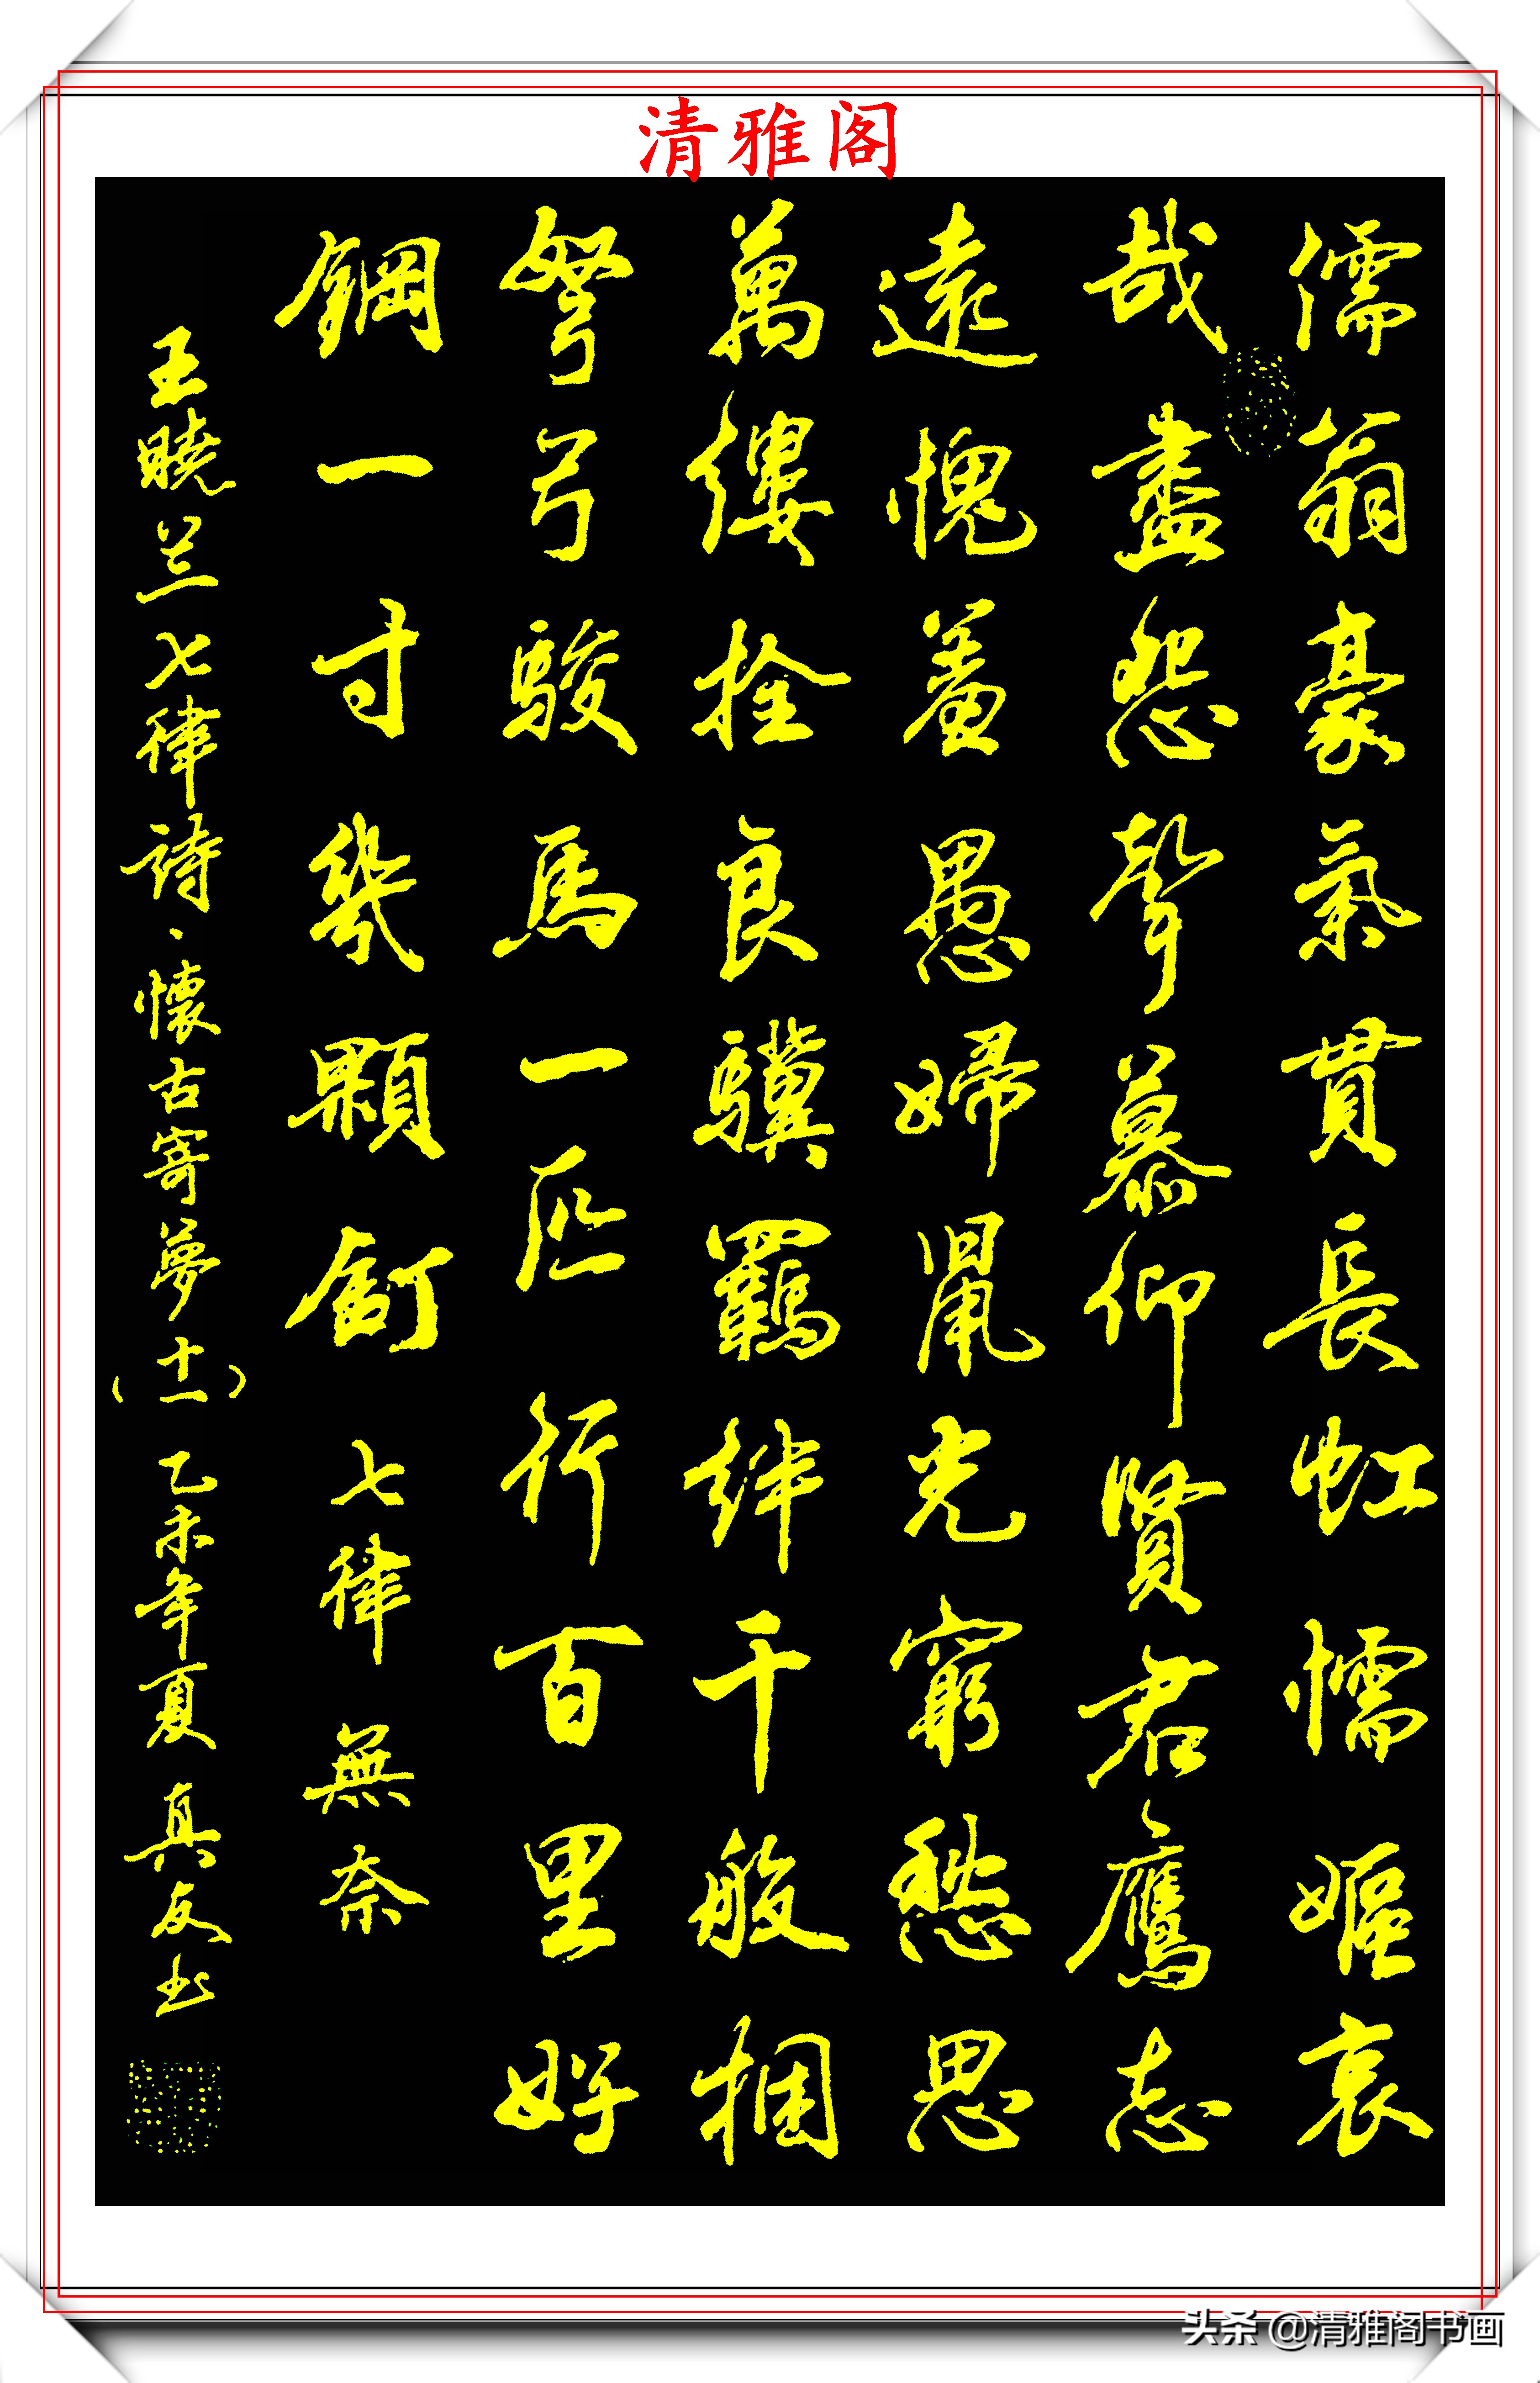 清雅阁
儒翁豪氣贯長虹懦嫗哀
哉盡怨聲慕仰贤君鷹志
遠愧羞愚婦鼠光窮愁思
萬縷拴良驥羈絆千般捆
弩弓駿馬一匹行百里好
鋼一寸幾顆釘 七律 無奈
王曉兰七律詩、懷古寄夢（十一）乙未年夏 真友书
头条 @清雅阁书画